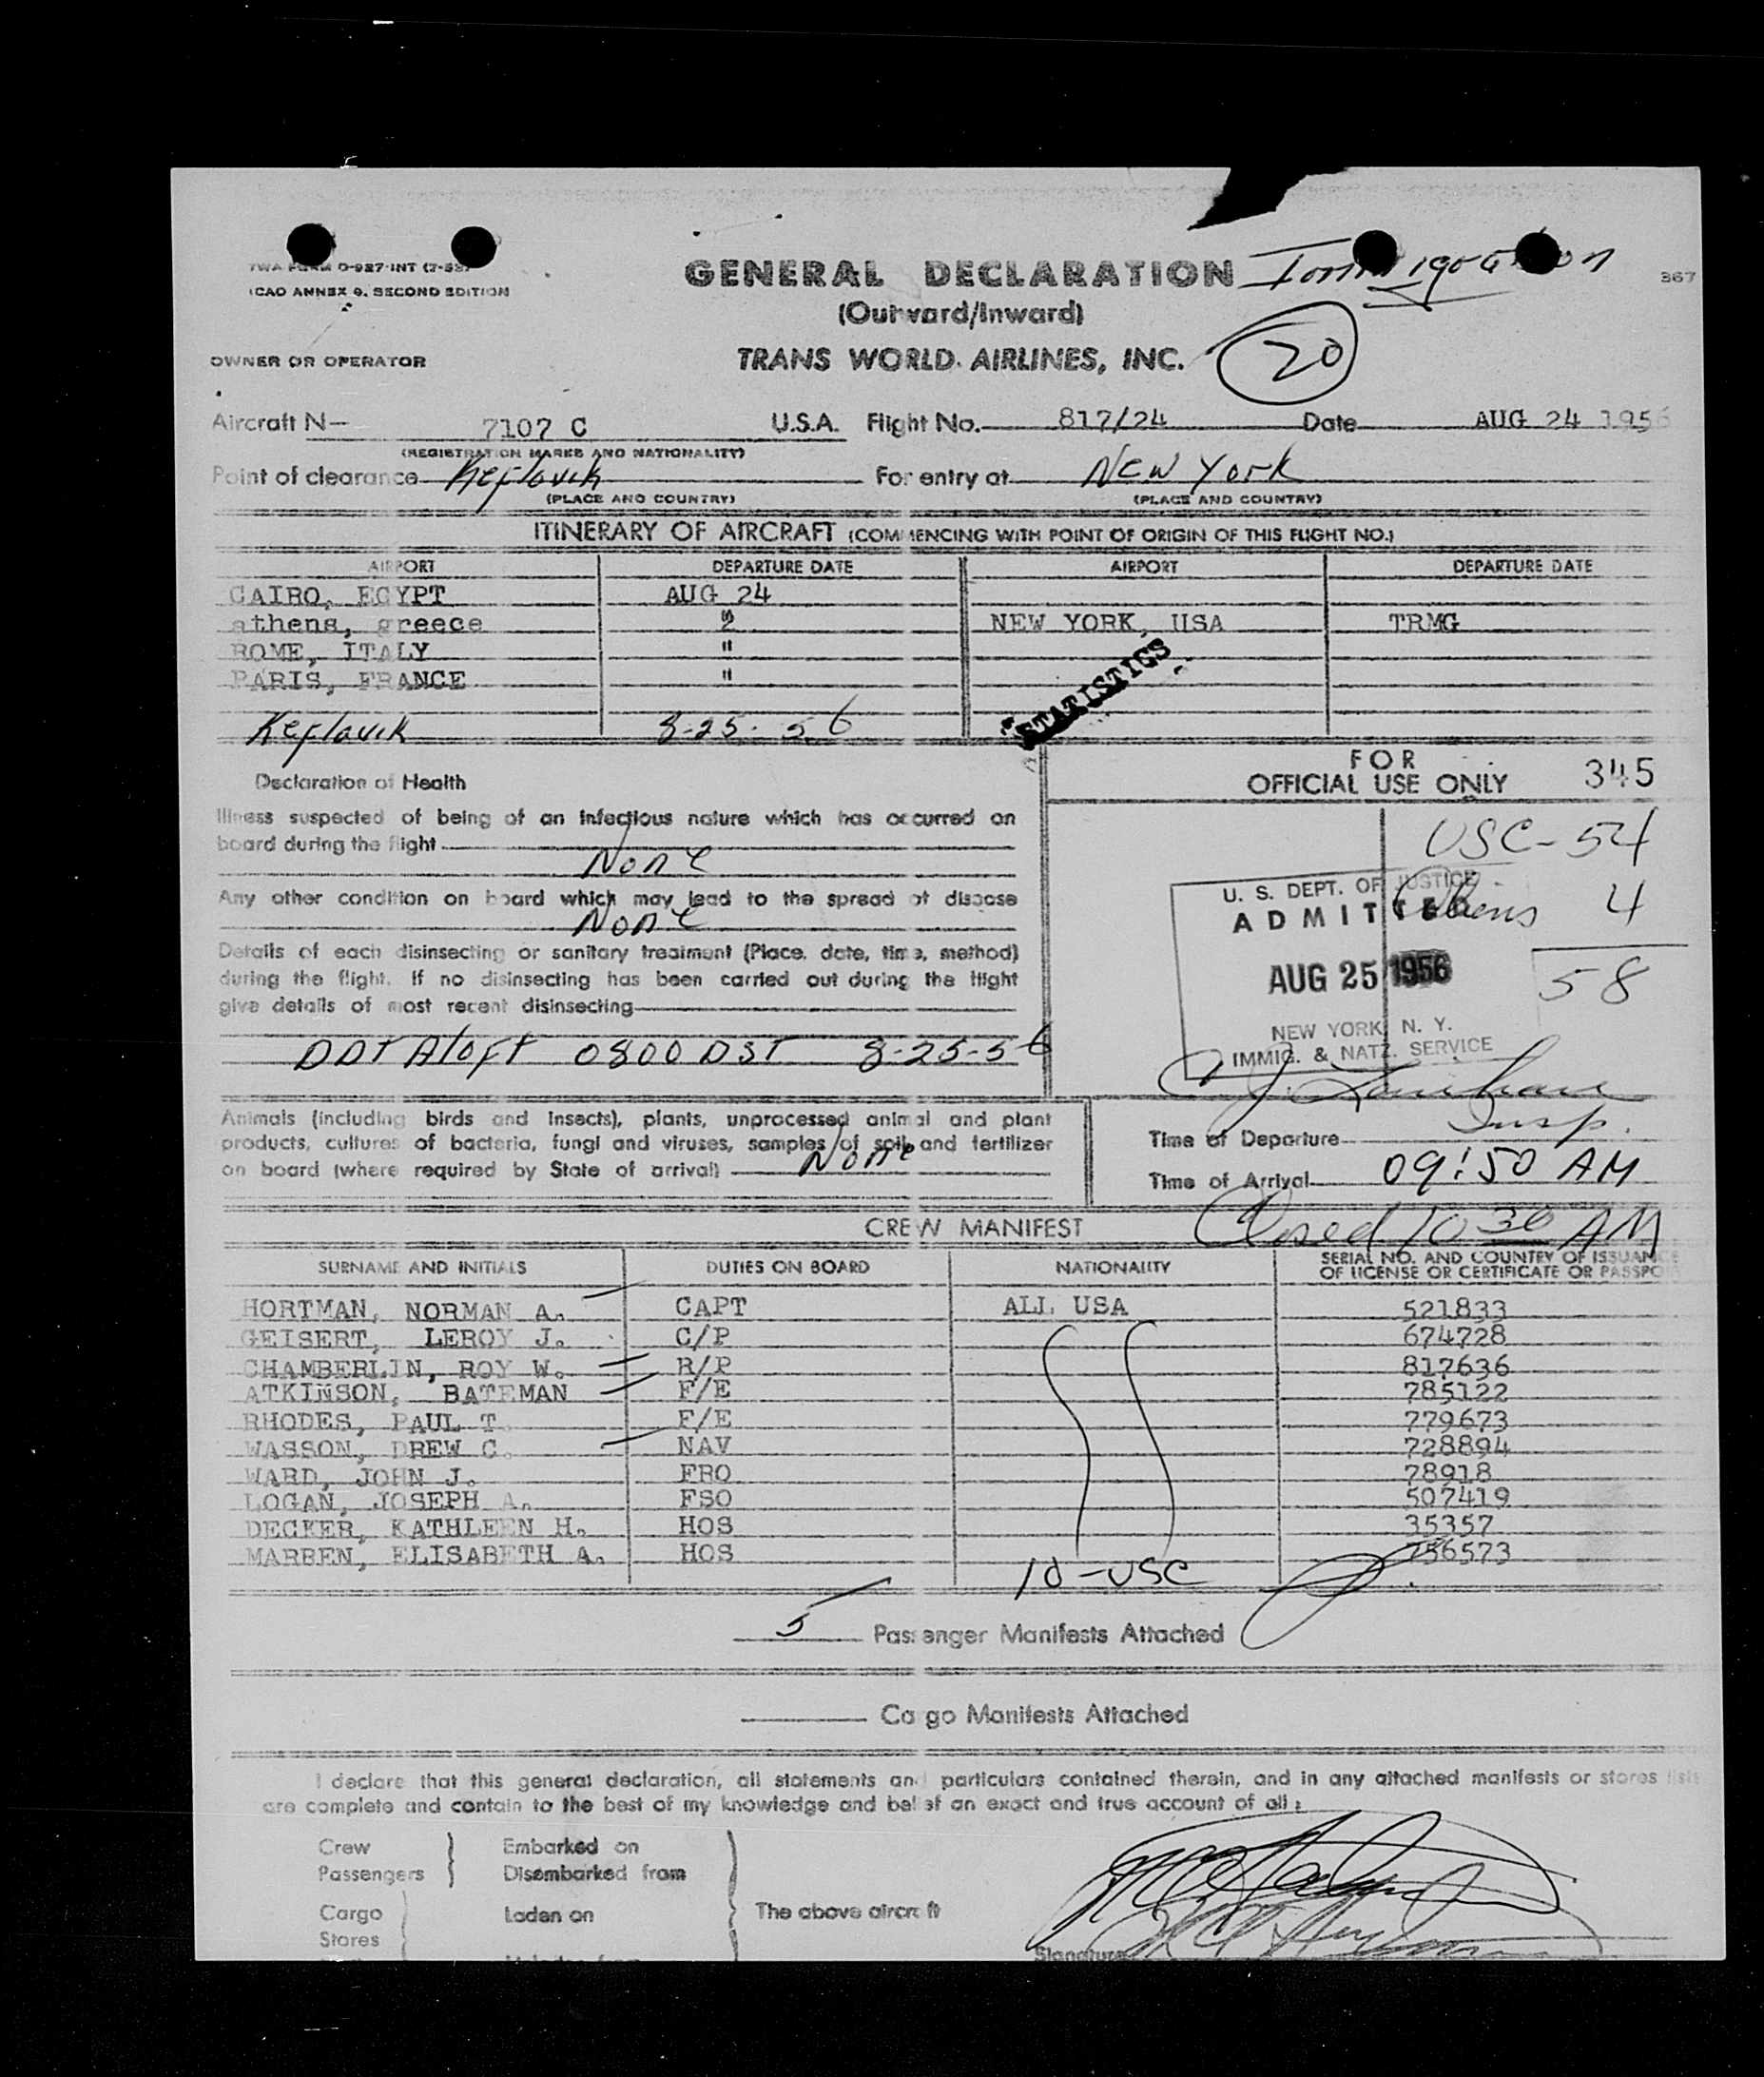 TWA FORM O-927-INT
ICAO ANNEX 9, SECOND EDITION
GENERAL DECLARATION
Immigration
367
(Outward/Inward)
OWNER OR OPERATOR
TRANS WORLD AIRLINES, INC.
20
Aircraft N— 7107 C U.S.A. Flight No. 817/24 Date AUG 24 1956
(REGISTRATION MARKS AND NATIONALITY)
Point of clearance Keflavik For entry at New York
(PLACE AND COUNTRY) (PLACE AND COUNTRY)
ITINERARY OF AIRCRAFT (COMMENCING WITH POINT OF ORIGIN OF THIS FLIGHT NO.)
AIRPORT DEPARTURE DATE AIRPORT DEPARTURE DATE
CAIRO, EGYPT AUG 24
athens, greece NEW YORK, USA TRMG
ROME, ITALY "
PARIS, FRANCE "
STATISTICS
Keflavik 8-25-56
Declaration of Health
FOR
OFFICIAL USE ONLY 345
Illness suspected of being of an infectious nature which has occurred on
board during the flight
None
USC-54
Any other condition on board which may lead to the spread of disease
None
Aliens 4
58
U. S. DEPT. OF JUSTICE
ADMITTED
AUG 25 1956
NEW YORK, N. Y.
IMMIG. & NATZ. SERVICE
Details of each disinsecting or sanitary treatment (Place, date, time, method)
during the flight. If no disinsecting has been carried out during the flight
give details of most recent disinsecting
DDT Aloft 0800 DST 8-25-56
Insp.
Animals (including birds and insects), plants, unprocessed animal and plant
products, cultures of bacteria, fungi and viruses, samples of soil and fertilizer
on board (where required by State of arrival) None
Time of Departure
Time of Arrival 09:50 AM
Closed 10 30 AM
CREW MANIFEST
SURNAME AND INITIALS DUTIES ON BOARD NATIONALITY SERIAL NO. AND COUNTRY OF ISSUANCE
OF LICENSE OR CERTIFICATE OR PASSPO
HORTMAN, NORMAN A. CAPT ALL USA 521833
GEISERT, LEROY J. C/P 674728
CHAMBERLIN, ROY W. R/P 817636
ATKINSON, BATEMAN F/E 785122
RHODES, PAUL T. F/E 779673
WASSON, DREW C. NAV 728894
WARD, JOHN J. FRO 78918
LOGAN, JOSEPH A. FSO 507419
DECKER, KATHLEEN H. HOS 35357
MARBEN, ELISABETH A. HOS 756573
10-USC
5 Passenger Manifests Attached
Cargo Manifests Attached
I declare that this general declaration, all statements and particulars contained therein, and in any attached manifests or stores lists
are complete and contain to the best of my knowledge and belief an exact and true account of all :
Crew Embarked on
Passengers Disembarked from
Cargo Laden on The above aircraft
Stores
Signature